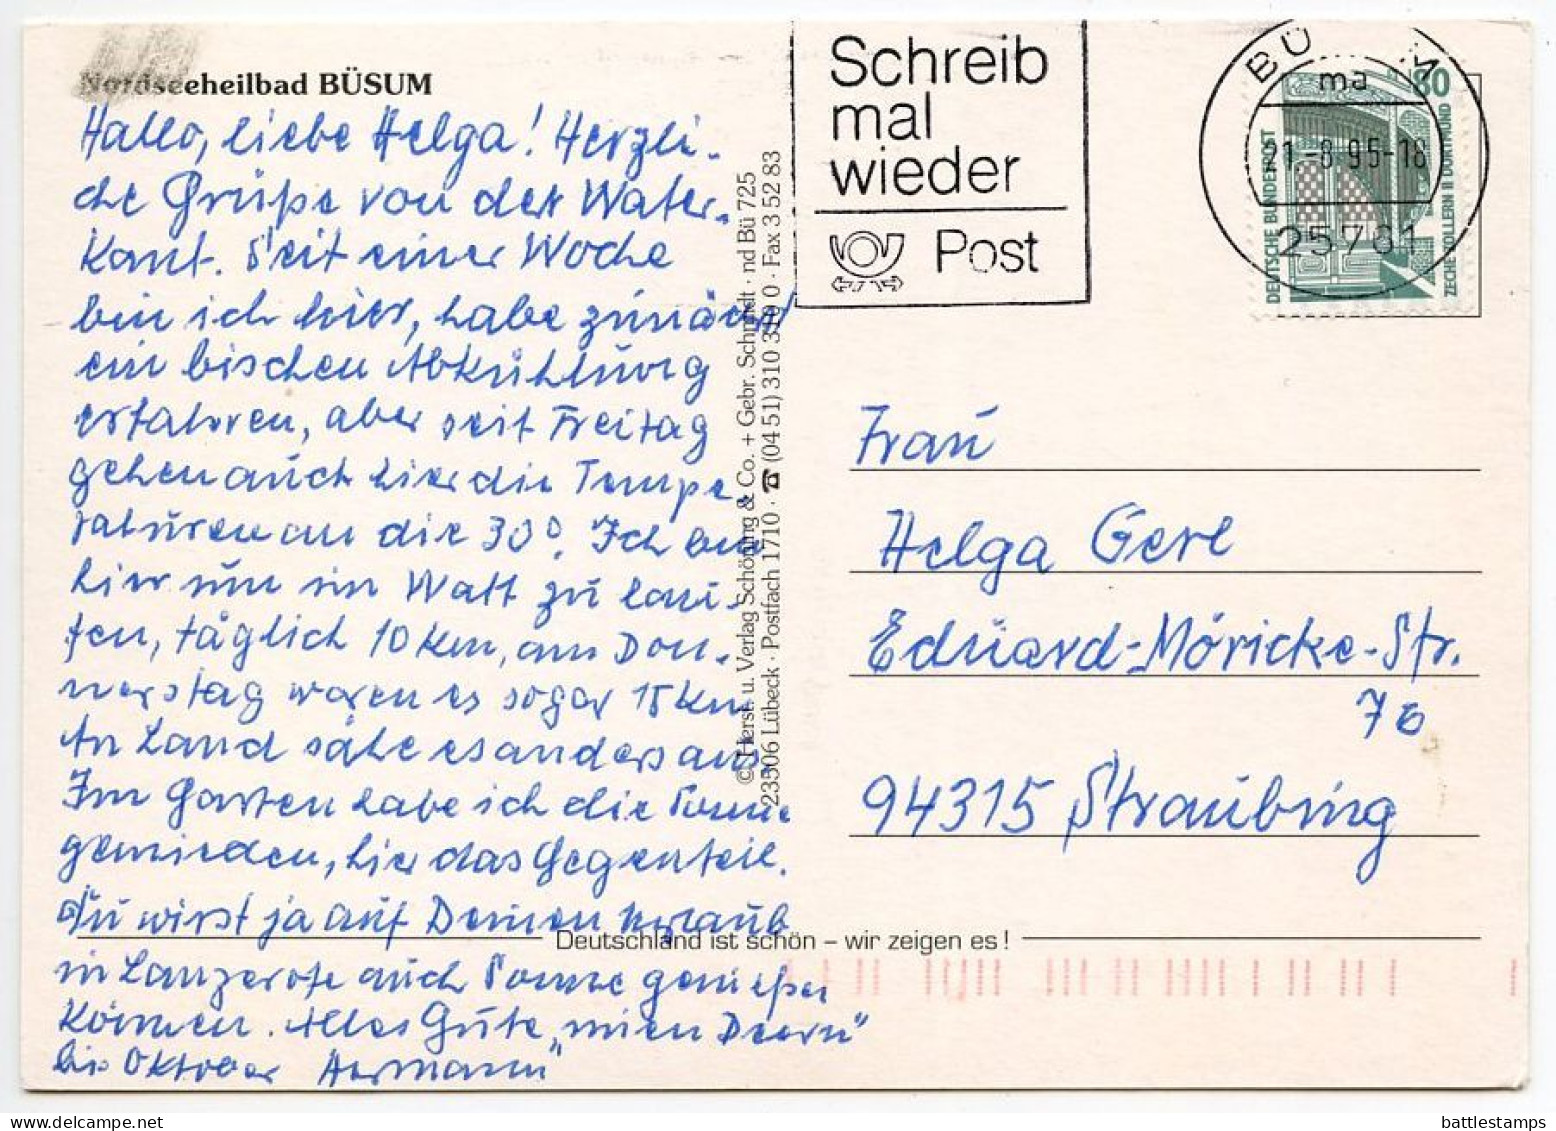 Nordseeheilbad BÜSUM
Hallo, liebe Helga! Herzli-
che Grüße von der Water-
kant. Seit einer Woche
bin ich hier, habe zunächst
ein bischen Abkühlung
erfahren, aber seit Freitag
gehen auch hier die Tempe-
raturen an die 30°. Ich bin
hier um im Watt zu lau-
fen, täglich 10 km, am Don-
nerstag waren es sogar 15 km
An Land sähe es anders aus.
Im Garten habe ich die Sonne
gemieden, hier das Gegenteil.
Du wirst ja auf Deinen Urlaub
in Lanzerote auch Sonne genießen
können. Alles Gute, "mien Deern"
bis Oktober Hermann
© Herst. u. Verlag Schöning & Co. + Gebr. Schmidt · nd Bü 725
23506 Lübeck · Postfach 1710 · ☎ (04 51) 310 330 0 · Fax 3 52 83
Schreib
mal
wieder
Post
BÜSUM
ma
21.-8.95-18
25761
80
DEUTSCHE BUNDESPOST
ZECHE ZOLLERN II DORTMUND
Frau
Helga Gerl
Eduard-Möricke-Str.
76
94315 Straubing
Deutschland ist schön – wir zeigen es!
battlestamps